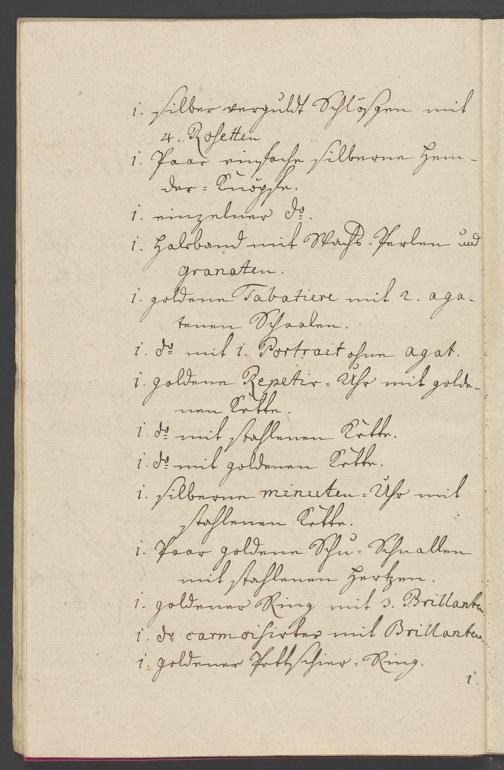 1. silber verguldt Schlößgen mit
4. Rosetten
1. Paar einfache silberne Hem-
der-Knöpfe.
1. einzelner do.
1. Halsband mit Wachs-Perlen und
granaten.
1. goldene Tabatiere mit 2. aga-
tenen Schaalen.
1. do mit 1. Portrait ohne agat.
1. goldene Repetir-Uhr mit golde-
nen Kette.
1. do mit stahlenen Kette.
1. do mit goldenen Kette.
1. silberne minuten-Uhr mit
stahlenen Kette.
1. Paar goldene Schu-Schnallen
mit stahlenen Hertzen.
1. goldener Ring mit 3. Brillanten
1. do carmoisirter mit Brillanten
1. goldener Pettschier-Ring.
1.